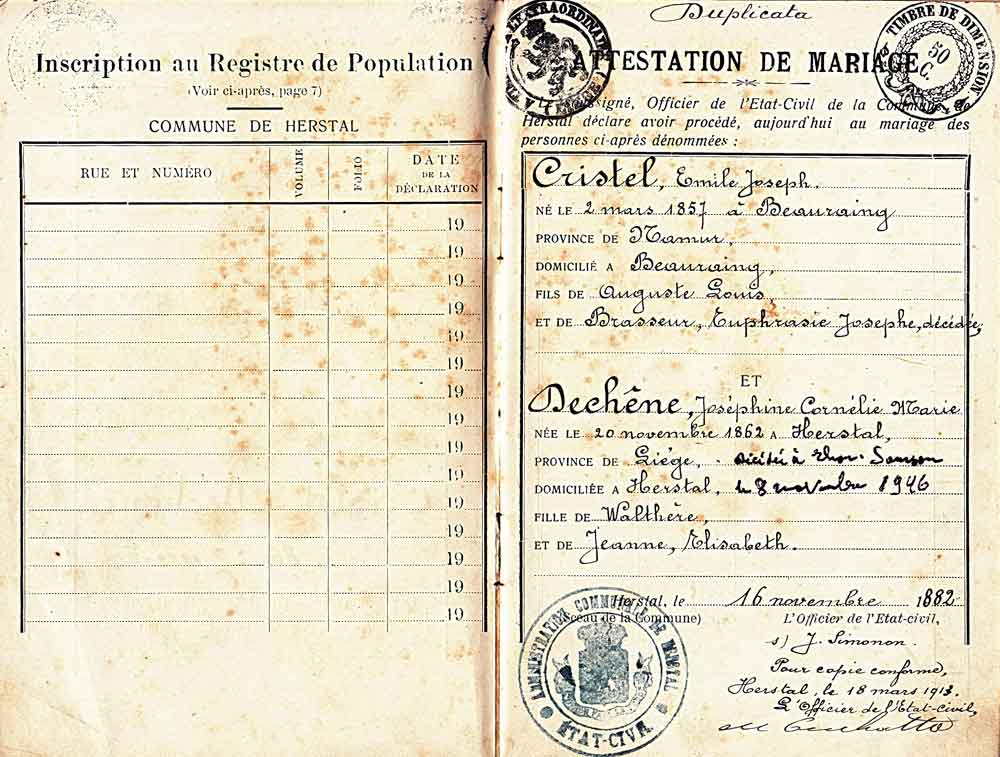 Inscription au Registre de Population
(Voir ci-après, page 7)
COMMUNE DE HERSTAL
RUE ET NUMÉRO
VOLUME
FOLIO
DATE
DE LA
DÉCLARATION
19
19
19
19
19
19
19
19
19
19
19
19
19
19
19
Duplicata
TIMBRE DE DIMENSION
50
C.
ATTESTATION DE MARIAGE
Officier de l'Etat-Civil de la
Herstal déclare avoir procédé, aujourd'hui au mariage des
personnes ci-après dénommées :
Cristel, Emile Joseph.
NÉ LE 2 mars 1857 à Beauraing
PROVINCE DE Namur,
DOMICILIÉ A Beauraing,
FILS DE Auguste Louis,
ET DE Brasseur, Euphrasie Josephe, décédée,
ET
Dechêne, Joséphine Cornélie Marie
NÉE LE 20 novembre 1862 A Herstal,
PROVINCE DE Liége, décédée à Thon-Samson
DOMICILIÉE A Herstal, le 8 novembre 1946
FILLE DE Walthère,
ET DE Jeanne, Elisabeth.
Herstal, le 16 novembre 1882
(Sceau de la Commune) L'Officier de l'Etat-civil,
s) J. Simonon.
Pour copie conforme,
Herstal, le 18 mars 1913.
L'Officier de l'Etat-civil,
ADMINISTRATION COMMUNALE DE HERSTAL
ÉTAT-CIVIL